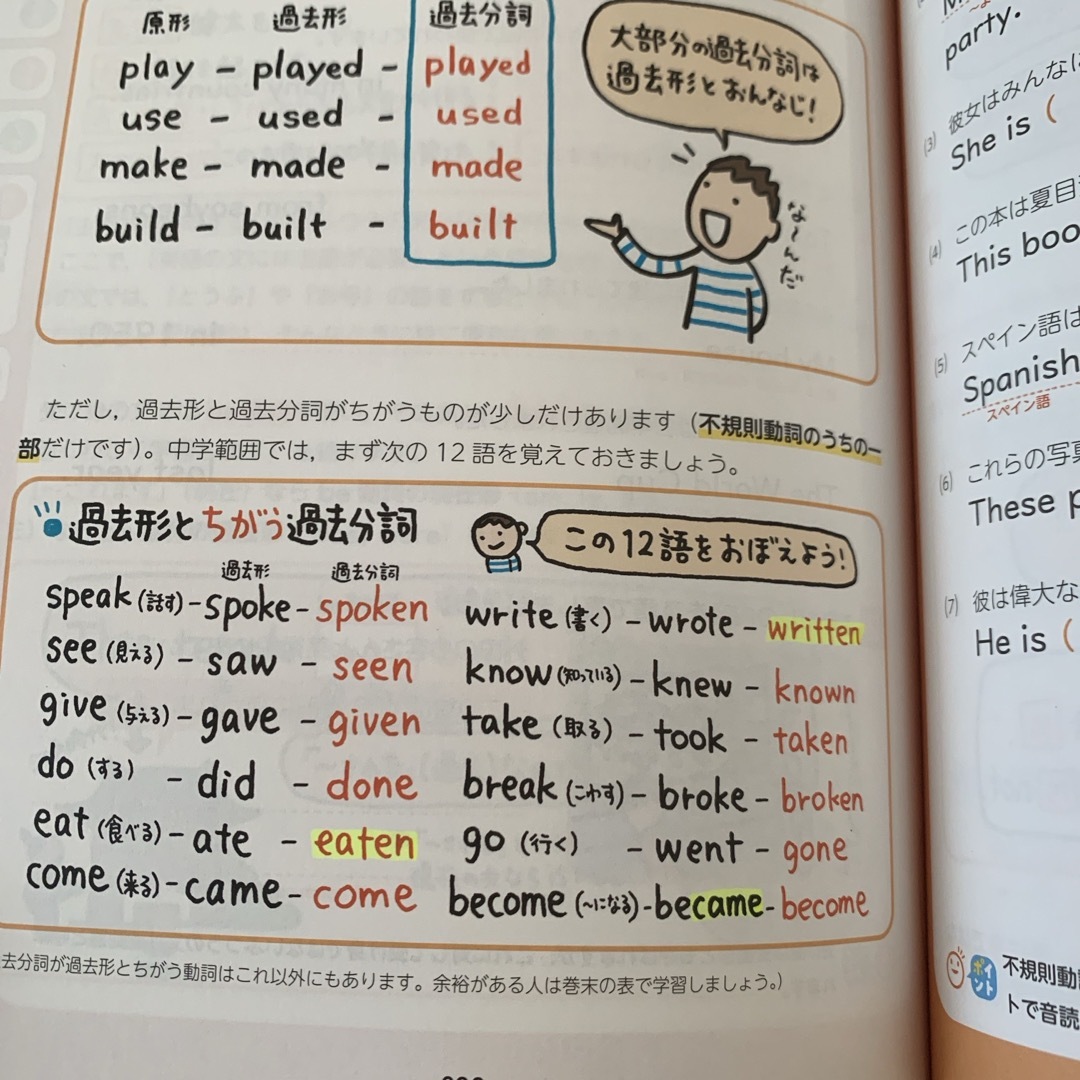 原形 過去形 過去分詞
play - played - played
use - used - used
make - made - made
build - built - built
大部分の過去分詞は
過去形とおんなじ!
な〜んだ
ただし，過去形と過去分詞がちがうものが少しだけあります（不規則動詞のうちの一
部だけです）。中学範囲では，まず次の12語を覚えておきましょう。
過去形とちがう過去分詞
この12語をおぼえよう!
過去形 過去分詞
speak (話す) - spoke - spoken
see (見える) - saw - seen
give (与える) - gave - given
do (する) - did - done
eat (食べる) - ate - eaten
come (来る) - came - come
write (書く) - wrote - written
know (知っている) - knew - known
take (取る) - took - taken
break (こわす) - broke - broken
go (行く) - went - gone
become (〜になる) - became - become
去分詞が過去形とちがう動詞はこれ以外にもあります。余裕がある人は巻末の表で学習しましょう。）
party.
(3) 彼女はみんなに
She is (
(4) この本は夏目
This boo
(5) スペイン語は
Spanish
スペイン語
(6) これらの写真
These p
(7) 彼は偉大な
He is (
ポイント 不規則動
トで音読